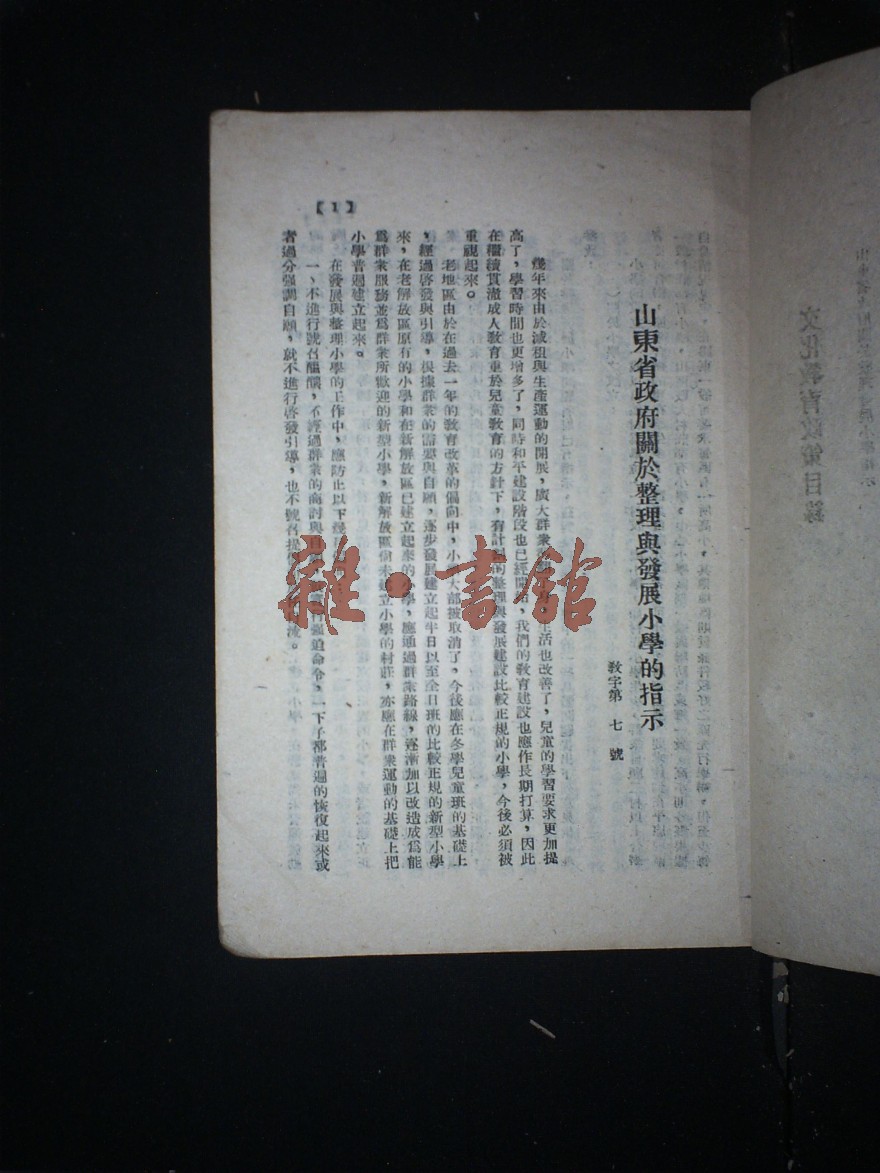 山東省政府關於整理與發展小學的指示
教字第 七 號
幾年來由於減租與生產運動的開展,廣大群衆生活也改善了,兒童的學習要求更加提
高了,學習時間也更增多了,同時和平建設階段也已經開始,我們的教育建設也應作長期打算,因此
在繼續貫澈成人教育重於兒童教育的方針下,有計劃的整理與發展建設比較正規的小學,今後必須被
重視起來。
老地區由於在過去一年的教育改革的偏向中,小學大部被取消了,今後應在冬學兒童班的基礎上
,經過啓發與引導,根據群衆的需要與自願,逐步發展建立起半日以至全日班的比較正規的新型小學
來,在老解放區原有的小學和在新解放區已建立起來的小學,應通過群衆路線,逐漸加以改造成爲能
爲群衆服務並爲群衆所歡迎的新型小學,新解放區尚未建立小學的村莊,亦應在群衆運動的基礎上把
小學普遍建立起來。
在發展與整理小學的工作中,應防止以下幾
一、不進行號召醞釀,不經過群衆的商討與自願,強迫命令,一下子都普遍的恢復起來或
者過分强調自願,就不進行啓發引導,也不號召提流。
【1】
文化教育政策目錄
雜·書館